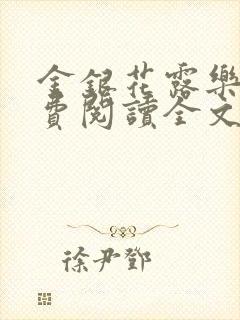 金銀花露樂
費閱讀全文
徐尹鄧